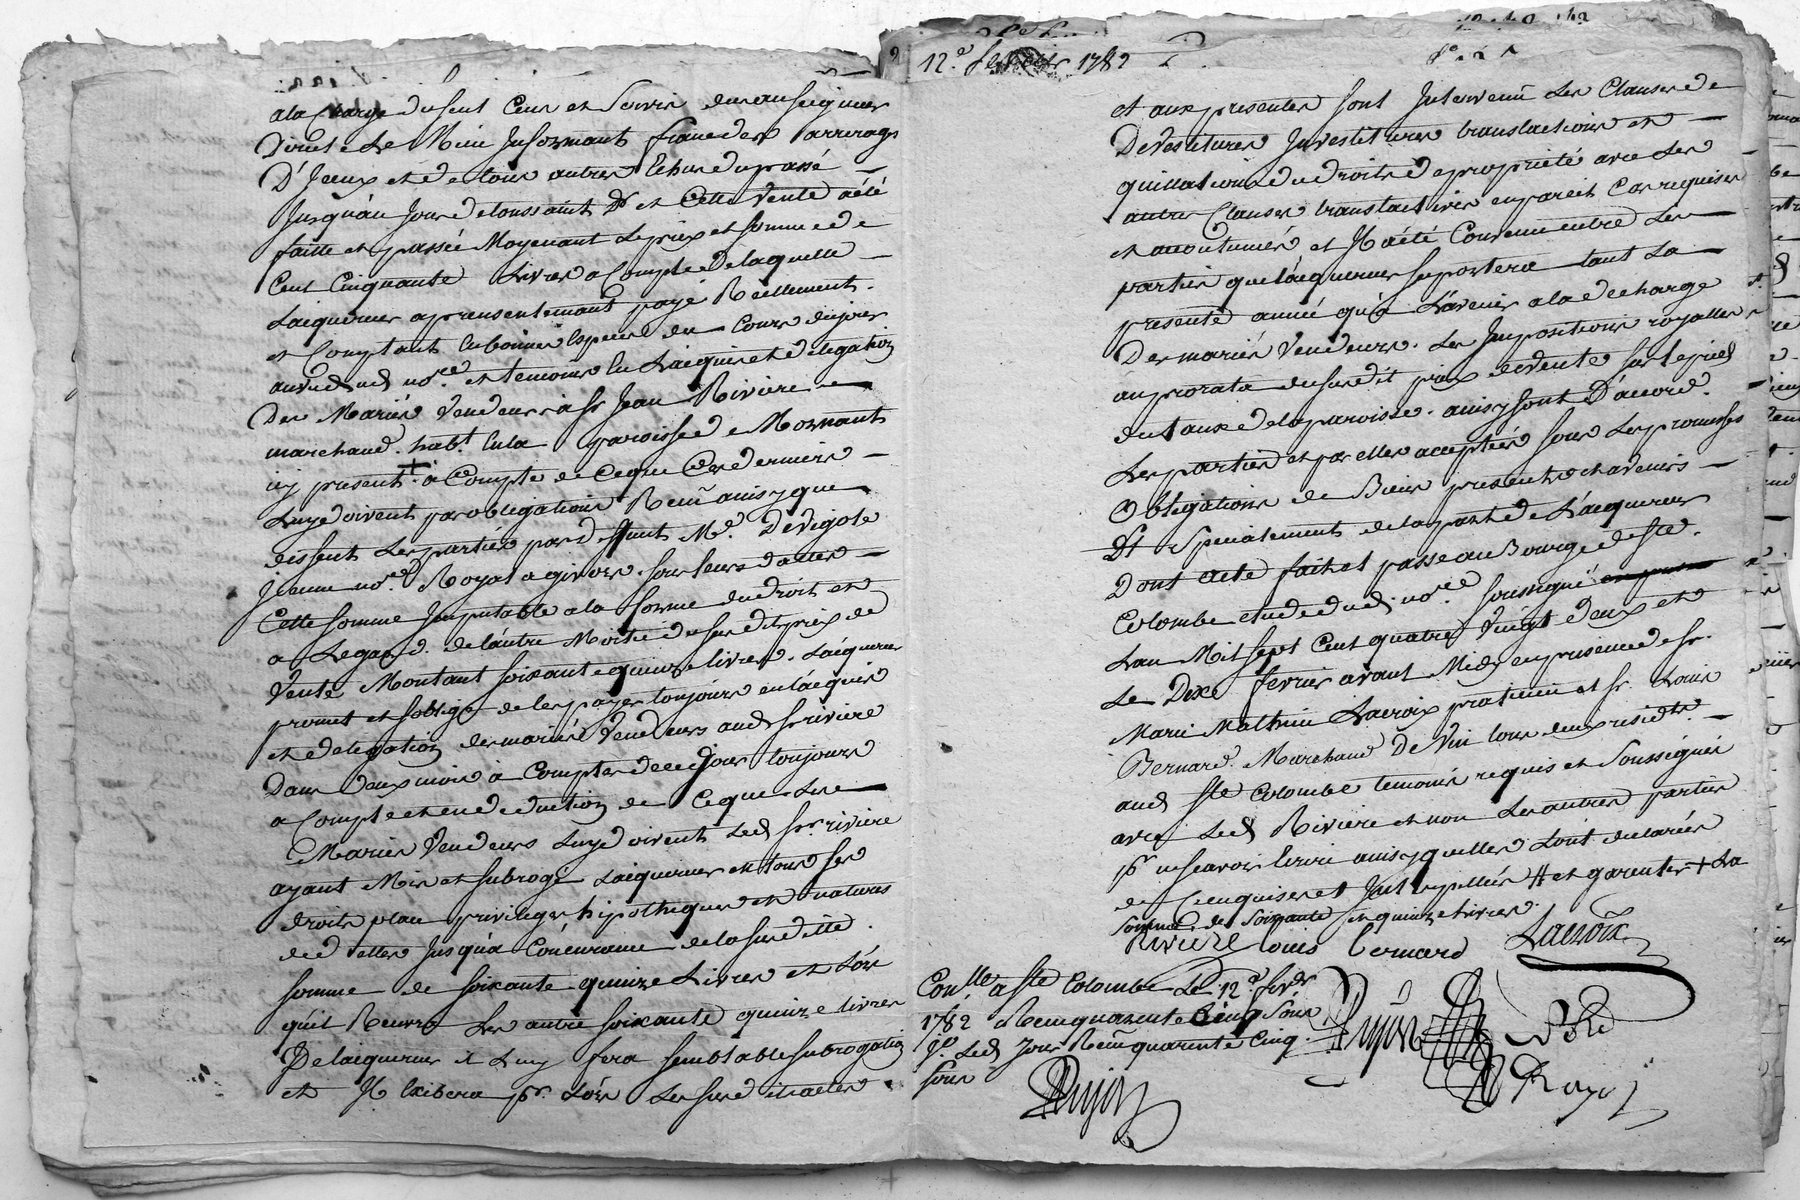 ala Charge du seul Cens et Servis deus au seigneur
Direct Le Mieu Informant franc des arrerages
D'Iceux et de tous autres Echus du passé
Jusqu'au Jour de toussaint Dr et Cette Vente a été
faitte et passée Moyenant Le prix et somme de
Cent Cinquante Livres a Compte de laquelle
Laiquereur a presentement payé Reellement
et Comptant En bonnes Especes du Cours du jour
au vu dud. nore. et temoins En L'acquit et delegation
Des Mariés Vendeurs à Sr Jean Riviere
marchand. habt. En la paroisse de Mornant
icy present + a Compte de Ceque Ces derniers
Luy doivent par obligations Recu ainsy que
dissent Les parties par deffunt Me. Devigole
Jeune nore. Royal a givors. sous leurs dattes
Cette somme Imputable a la forme du droit et
a Legard. de l'autre Moitié du susdit prix de
Vente Montant soixante quinze livres. L'aiquereur
promet et s'oblige de les payer toujours en L'acquit
et delegation des mariés Vendeurs aud. Sr riviere
Dans deux mois à Compter de ce jour toujours
a Compte et en deduction de Ceque Les
Mariés Vendeurs Luy doivent Led. Sr riviere
ayant Mis et subrogé Laiquereur en tous ses
droits place privileges hipotheques et natures
de dettes Jusqu'a Concurrance de la susditte
somme de soixante quinze Livres et Lors
qu'il Recevra Les autre soixante quinze livres
De Laiquereur Il Luy fera semblable subrogation
et Il Exibera pr. Lors Les susdits actes
12e. fevrier 1782
et aux presentes sont Intervenu Les Clauses de
Devestitures Investitures translactions et
quittations de droits de proprieté avec Les
autres Clauses translactives en pareil Cas requises
et acoutumés et Il a été Convenu entre Les
parties que L'aiquereur suportera tant La
presente année qu'a L'avenir a la decharge
Des mariés Vendeurs. Les Impositions royalles
au prorata du susdit prix de vente sur le pied
du taux de la paroisse. ainsy sont D'accord.
Les parties et par elles acceptées sous Les promesses
Obligations de Biens presents et a venirs
Dt Specialement de la part de L'acquereur
Dont acte fait et passé au Bourg de Ste.
Colombe etude dud. nore. soussigné
Lan Mil sept Cent quatre Vingt deux et
Le Dixe fevrier avant Midy en presence de Sr.
Marie Mathieu Lacroix praticien et Sr. Louis
Bernard. Marchand De Vin tous deux residts.
aud. Ste Colombe temoins requis et Soussignés
avec Led. Riviere et non Les autres parties
pr ne scavoir Ecrire ainsy quelles L'ont declarées
de Ce enquises et Interpellées # et garentir + La
somme de soixante et quinze livres.
Riviere louis bernard Lacroix
Conlle a Ste Colombe Le 12e fevr
1782 Recu quarente Cinq Sous
Led. Jour Recu quarente Cinq
sous
Dujon
Dujon Royal